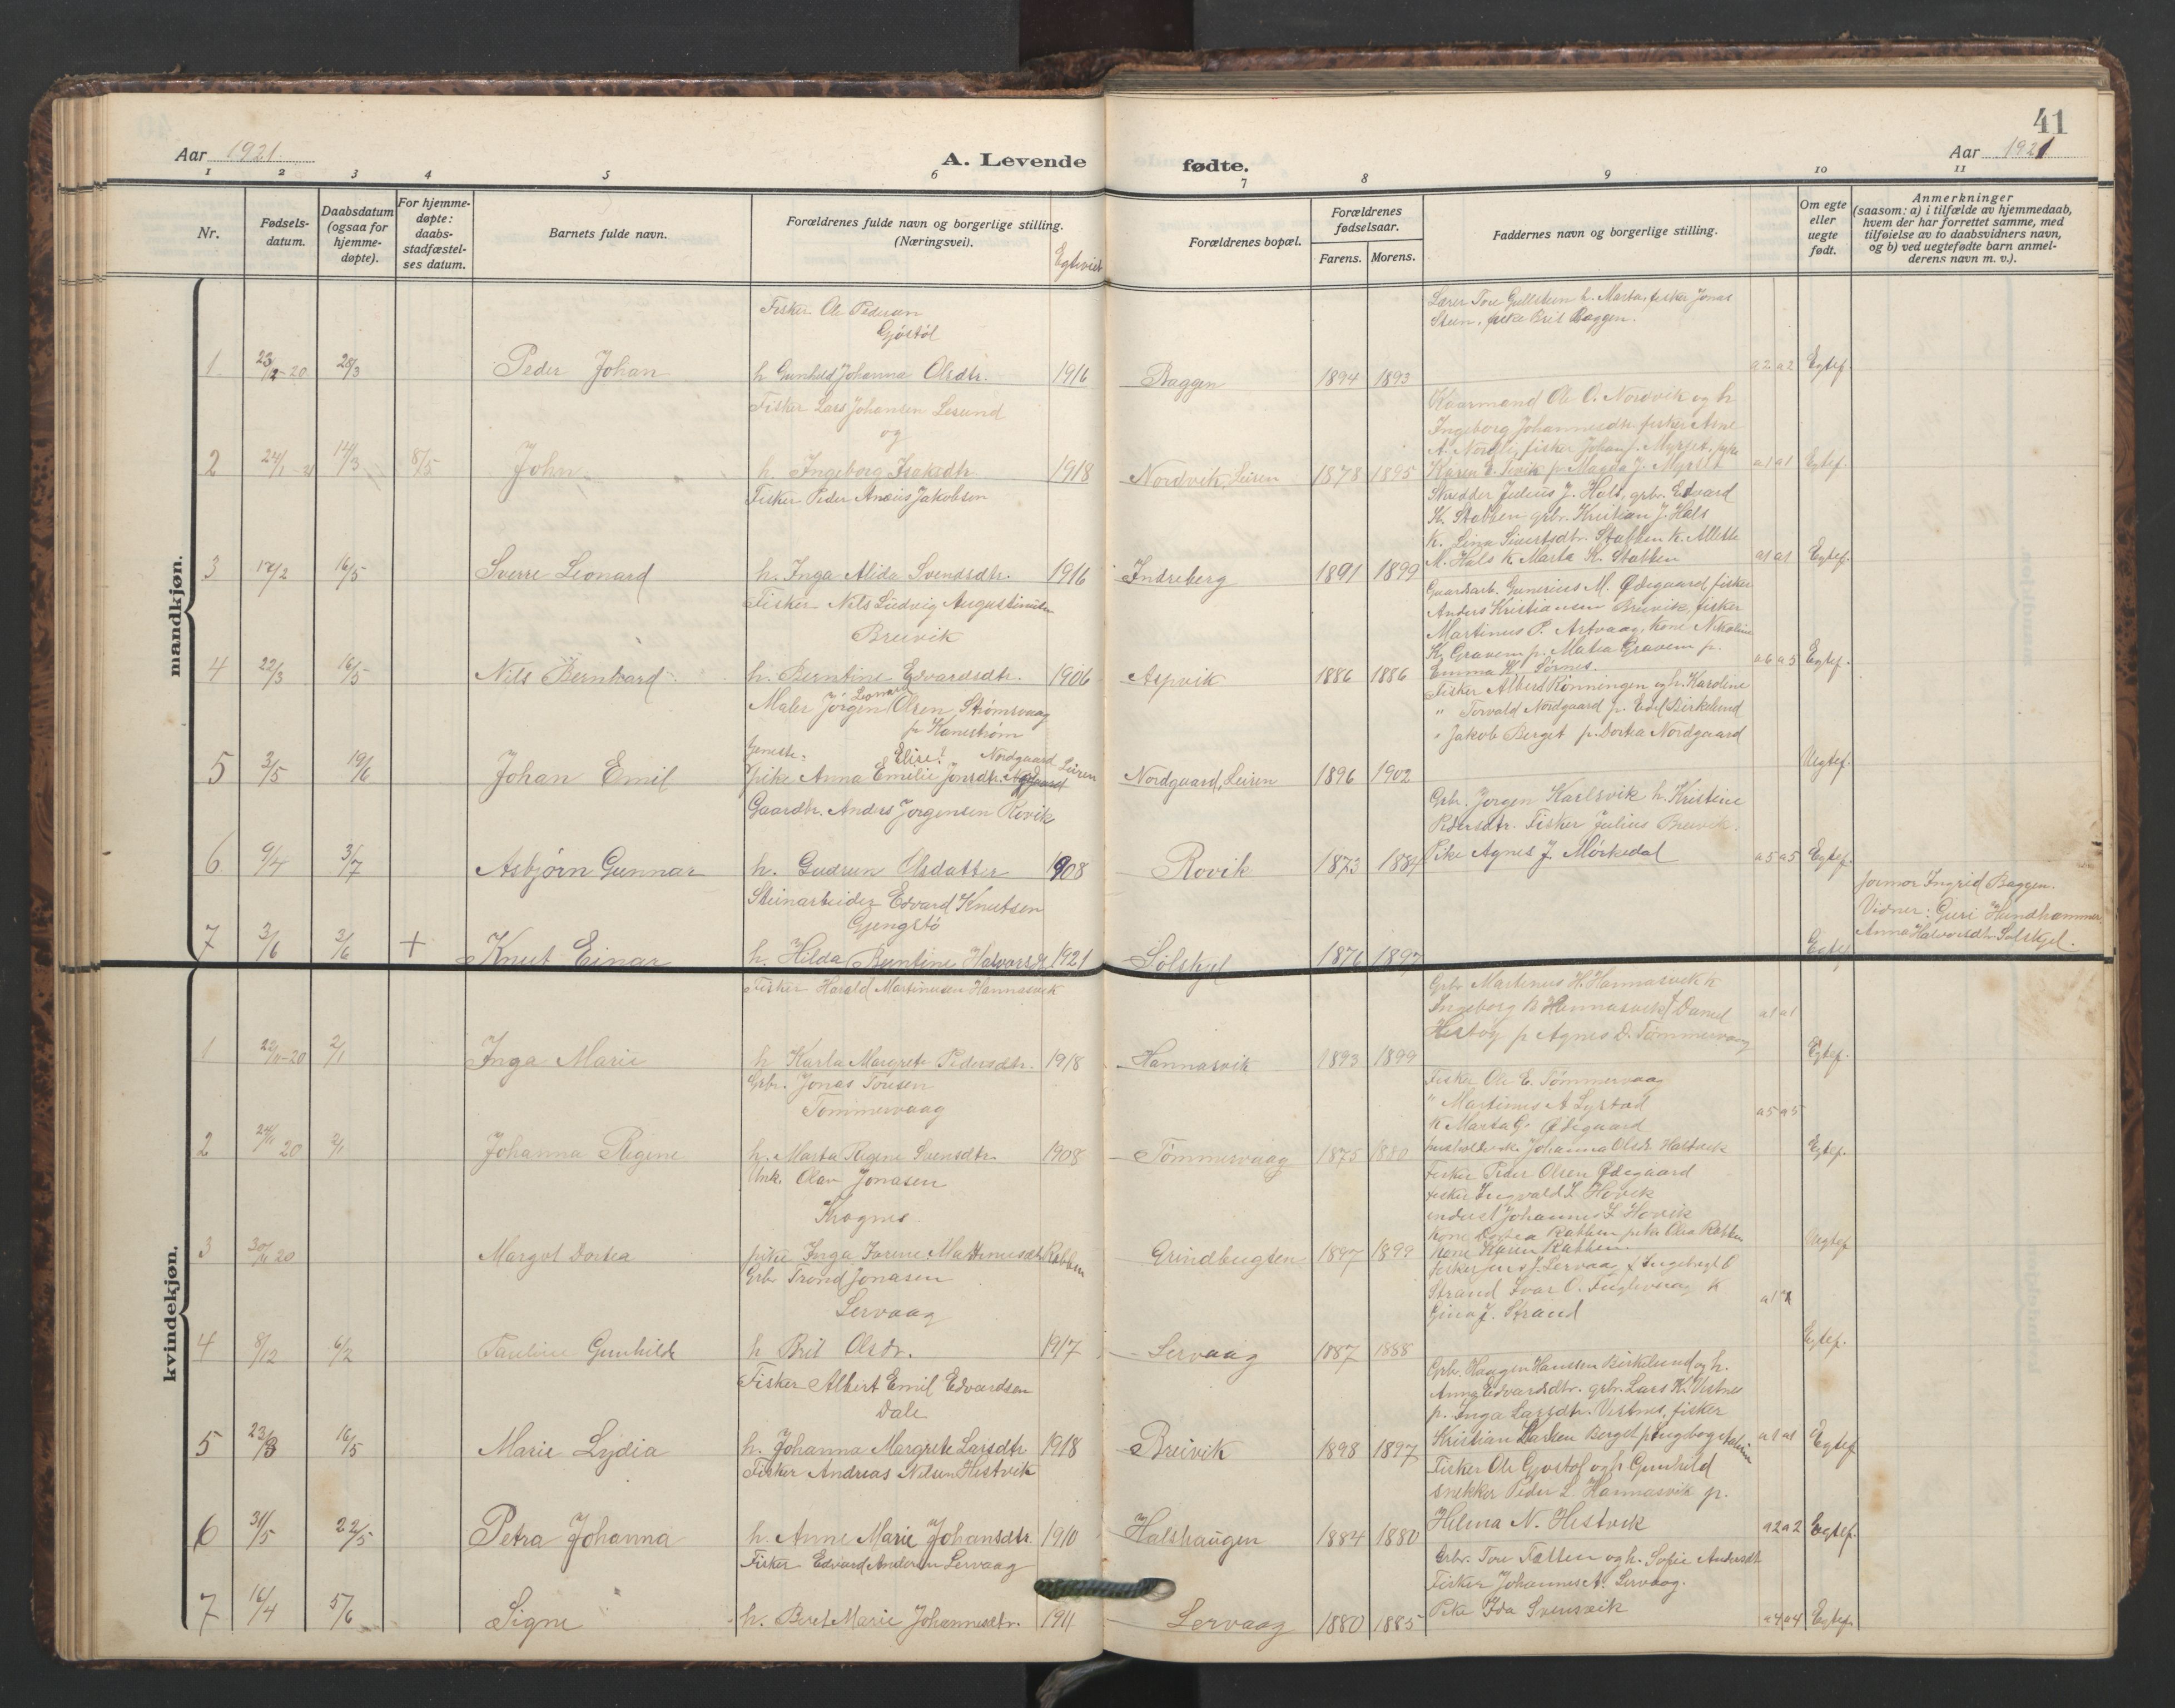 41
Aar 1921
A. Levende
fødte.
Aar 1921
1 2 3 4 5 6 7 8 9 10 11
Nr.
Fødsels-
datum.
Daabsdatum
(ogsaa for
hjemme-
døpte).
For hjemme-
døpte:
daabs-
stadfæstel-
ses datum.
Barnets fulde navn.
Forældrenes fulde navn og borgerlige stilling.
(Næringsvei).
Egteviet
Forældrenes bopæl.
Forældrenes
fødselsaar.
Farens. Morens.
Faddernes navn og borgerlige stilling.
Om egte
eller
uegte
født.
Anmerkninger
(saasom: a) i tilfælde av hjemmedaab,
hvem der har forrettet samme, med
tilføielse av to daabsvidners navn,
og b) ved uegtefødte barn anmel-
derens navn m. v.).
mandkjøn.
Fisker Ole Pedersen
Gjøstøl
Lærer Tore Gullsteen h. Marta, fisker Jonas
Steen, pike Brit Baggen.
1 23/12-20 28/3 Peder Johan h Gunhild Johanna Olsdtr. 1916 Baggen 1894 1893 a2 a2 Egtef.
Fisker Lars Johansen Lesund
og
Kaarmand Ole O. Nordvik og h
Ingeborg Johannesdtr. fisker Arne
A. Nordli, fisker Johan J. Myrset, pike
2 24/1-21 14/3 8/5 John h. Ingeborg Isaksdtr. 1918 Nordvik, Leiren 1878 1895 Karen E. Levik p Magda J. Myrset a1 a1 Egtef.
Fisker Peder Anæus Jakobsen
Skredder Julius J. Hals, grbr. Edvard
K. Stabben grbr. Kristian J. Hals
K. Lina Sivertsdtr. Stabben K. Allette
3 17/2 16/5 Sverre Leonard h. Inga Alida Svendsdtr. 1916 Indreberg 1891 1899 M. Hals K. Marta K. Stabben a1 a1 Egtef.
Fisker Nils Ludvig Augustinusen
Breivik
Gaardsarb. Gunerius M. Ødegaard, fisker
Anders Kristiansen Breivik, fisker
Martinus P. Artvaag, Kone Nikoline
K. Gravem p. Matea Gravem p.
4 22/3 16/5 Nils Bernhard h. Berntine Edvardsdtr. 1906 Aspvik 1886 1886 Emma K. Sørnes. a6 a5 Egtef.
Maler Jørgen Leonard Olsen, Strømsvaag
pr Kanestrøm
Fisker Albert Rönningen og h. Karoline
" Torvald Nordgaard p. Edel Birkelund
" Jakob Berget p. Dortea Nordgaard
Tjeneste- Elise? Nordgaard Leiren
5 3/5 19/6 Johan Emil pike Anna Emilie Jonsdtr. Nordgaard, Leiren 1896 1902 Uegtef.
Gaardbr. Anders Jørgensen Rovik
Grbr. Jørgen Karlsvik h. Kristine
Pedersdtr. Fisker Julius Breivik.
6 9/4 3/7 Asbjørn Gunnar h. Gudrun Olsdatter 1908 Rovik 1873 1884 Pike Agnes J. Mørkedal a5 a5 Egtef.
Steinarbeider Edvard Knutsen
Gjengstö
Jormor Ingrid Baggen.
Vidner: Guri Hundhammer
Anna Halvorsdtr. Solskjel.
7 3/6 3/6 + Knut Einar h. Hilda Berntine Halvorsdr 1921 Sølskjel 1876 1897 Egtef
kvindekjøn.
Fisker Harald Martinusen Hannasvik
Grbr Martinus H. Hannasvik K
Ingeborg B Hannasvik f Daniel
Hestøy p Agnes D. Tømmervaag
a1 a1
1 22/11-20 2/1 Inga Marie h Karla Margrete Pedersdtr. 1918 Hannasvik 1893 1899 Egtef.
Grbr. Jonas Toresen
Tømmervaag
Fisker Ole E. Tømmervaag
" Martinus A Lystad
K Marta G. Ødegaard
a5 a5
2 24/11 20 2/1 Johanna Regine h. Marta Regine Svensdtr. 1908 Tømmervaag 1875 1880 Johanna Olsdr Halsvik Egtef.
Unk. Olav Jonasen
Krognes.
Fisker Peder Olsen Ødegaard
fisker Ingvald L Hovik
indust Johannes L Hovik
Kone Dortea Rabben pike Olea Rabben
3 30/11 20 Margot Dortea pike Inga Jorine Martinusdtr Rabben Grindbugten 1897 1899 Kone Karen Rabben. Uegtef
Grbr Trond Jonasen
Lervaag
fisker Jens J. Lervaag f Ingebrigt O
Strand Ivar O. Fuglevaag K
Gina J. Strand
a1
4 8/12 6/2 Pauline Gunhilde h Brit Olsdr. 1917 Lervaag 1887 1888 Egtef.
Fisker Albert Emil Edvardsen
Dale
Grbr. Haagen Hanssen Birkelund og h.
Anna Edvardsdtr. grbr. Lars K. Vestnes
p. Inga Larsdtr. Vestnes, fisker
5 23/3 16/5 Marie Lydia h. Johanna Margrete Larsdtr 1918 Breivik 1898 1897 Kristian Larsen Berget p Ingeborg a1 a1 Egtef
Fisker Andreas Nilsen Hestvik
Fisker Ole Gjøstøl og h Gunhild
snekker Peder L. Hannasvik p.
6 31/5 22/5 Petra Johanna h. Anne Marie Johansdtr. 1910 Halshaugen 1884 1880 Helena N. Hestvik a2 a2 Egtef.
Fisker Edvard Andersen Lervaag
Grbr. Tore Fætten og h. Sofie Andersdtr
Fisker Johannes A. Lervaag.
7 16/4 5/6 Signe h. Beret Marie Johannesdtr. 1911 Lervaag 1880 1885 Pike Ida Svensvik a4 a4 Egtef.